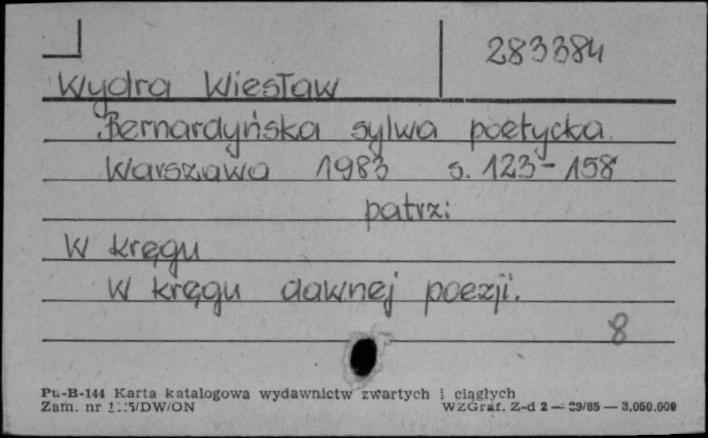 283384
Wydra Wiesław
Bernardyńska sylwa poetycka.
Warszawa 1983 s. 123-158
patrz:
W kręgu
W kręgu dawnej poezji.
8
Pu-B-144 Karta katalogowa wydawnictw zwartych i ciągłych
Zam. nr WZGraf. Z-d 2 — 29/85 — 3.060.000